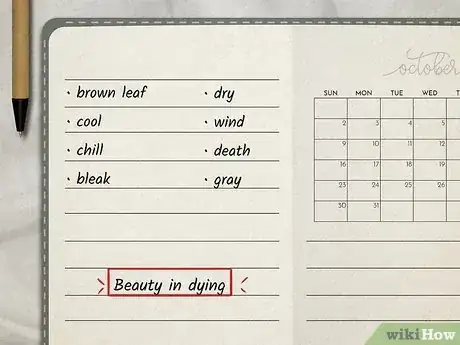 october
· brown leaf · dry
· cool · wind
· chill · death
· bleak · gray
Beauty in dying
SUN MON TUE WED
2 3 4 5
9 10 11 12
16 17 18 19
23 24 25 26
30 31
wikiHow